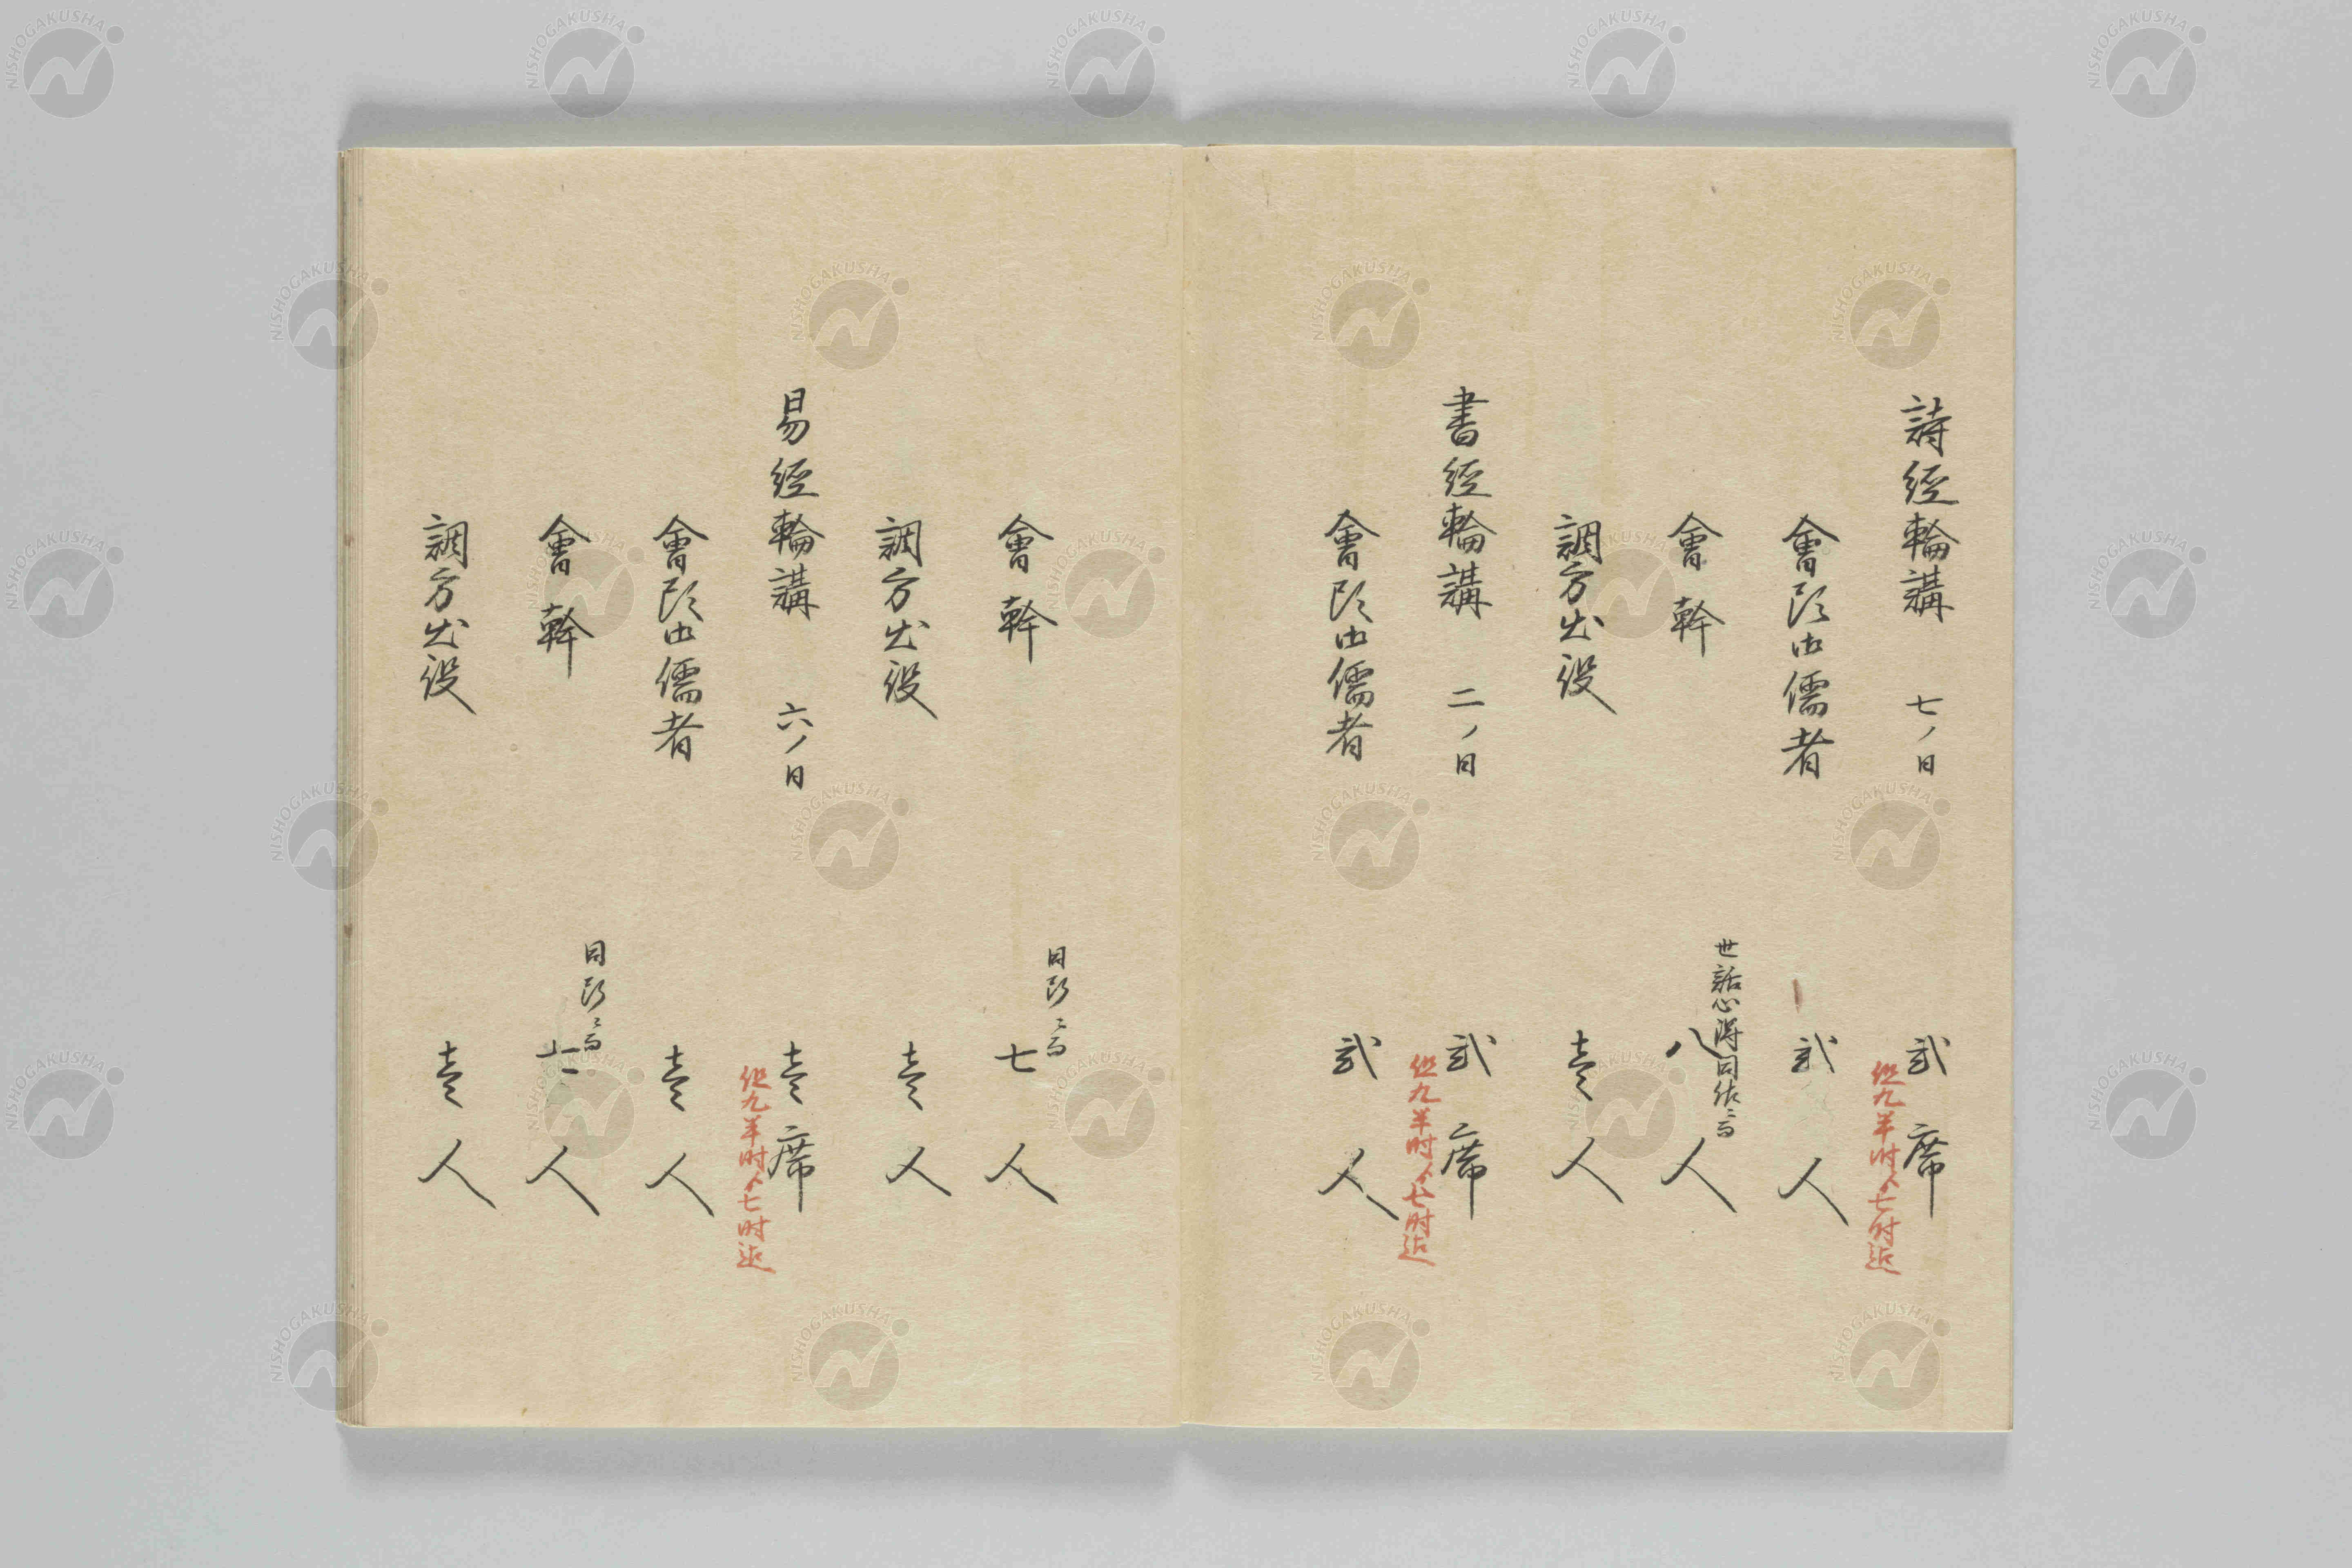 詩經輪講 七ノ日 弐席
但九半時ゟ七時迄
會頭御儒者 弐人
世話心得同佐ニ而
會幹 八人
調方出役 壱人
書經輪講 二ノ日 弐席
但九半時ゟ七時迄
會頭御儒者 弐人
同断ニ而
會幹 七人
調方出役 壱人
易經輪講 六ノ日 壱席
但九半時ゟ七時迄
會頭御儒者 壱人
同断ニ而
會幹 人
調方出役 壱人
NISHOGAKUSHA